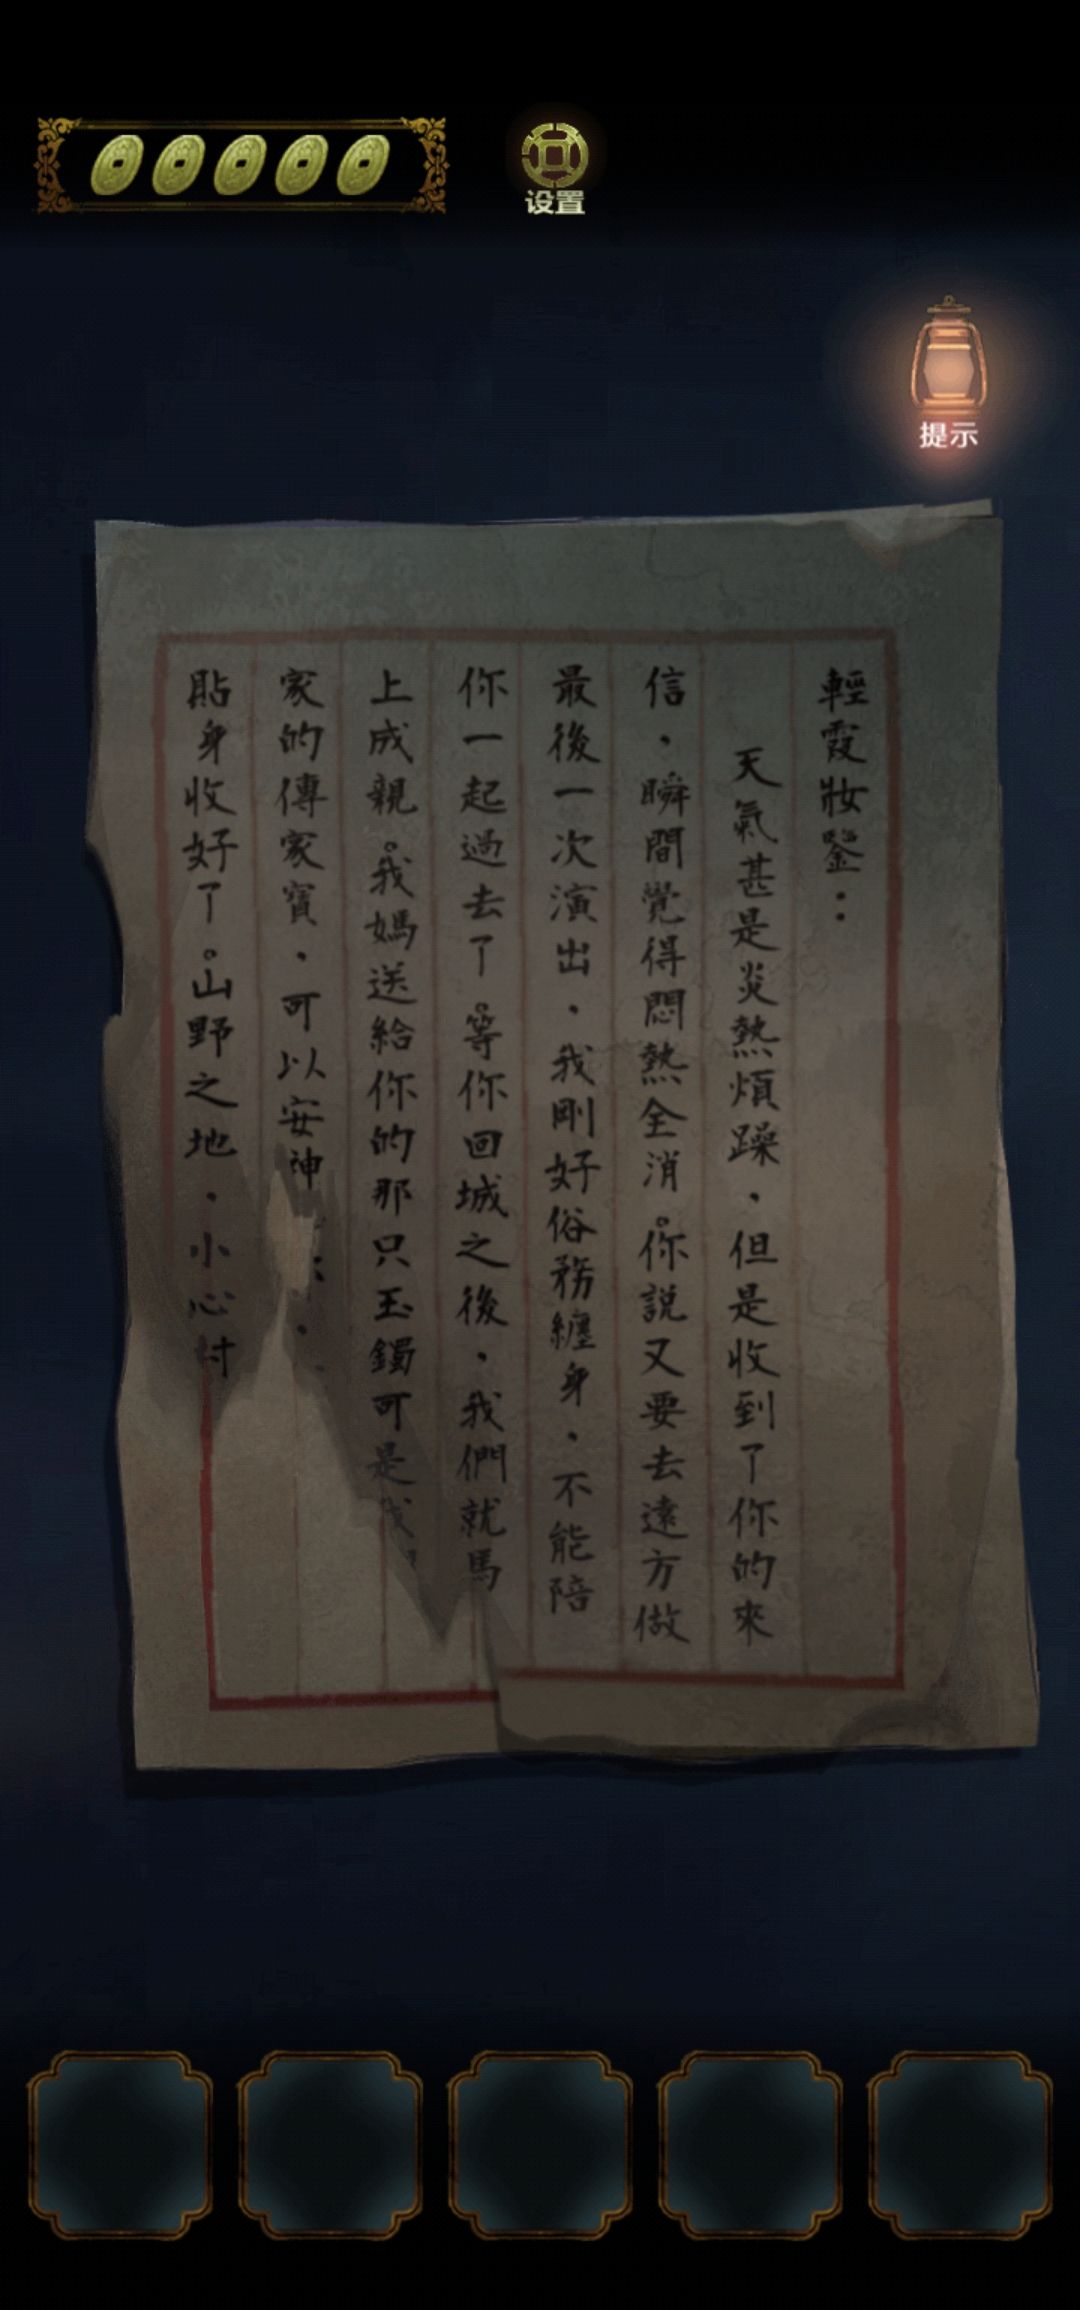 设置
提示
輕霞妝鑒：
天氣甚是炎熱煩躁，但是收到了你的來
信，瞬間覺得悶熱全消。你説又要去遠方做
最後一次演出，我剛好俗務纏身，不能陪
你一起過去了。等你回城之後，我們就馬
上成親。我媽送給你的那只玉鐲可是
家的傳家寶，可以安神
貼身收好了。山野之地，小心